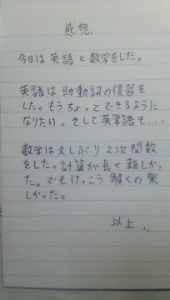 感想
今日は英語と数学をした。
英語は助動詞の復習を
した。もうちょっとできるように
なりたい。そして英単語も....
数学は久しぶり2次関数
をした。計算が長くて難しかっ
た。でもけっこう解くの楽
しかった。
以上.